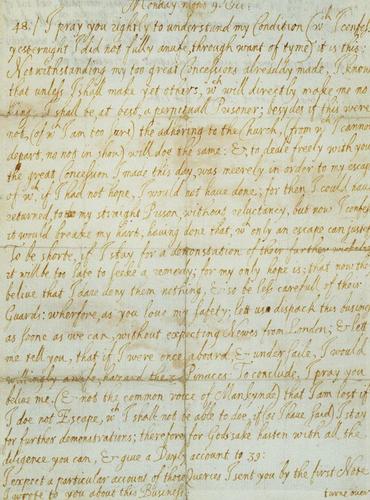 Monday morn: 9. Oct:
48:/ I pray you rightly to understand my Condition (wch I confess
yesternight I did not fully anufe, through want of tyme) it is this:
Notwithstanding my too great Concessions alreaddy made, I know
that unless I shall make yet others, wch will directly make me no
King, I shall be, at best, a perpetuall Prisoner; besydes if this were
not, (of wch I am too sure) the adhering to the Church, (from wch I cannot
depart, no not in shew) will doe the same: & to deale freely with you
the great Concession I made this day, was meerly in order to my escape
of wch, if I had not hope, I would not have done; for then I could have
returned, to my straight Prison, without reluctancy, but now I confess
it would breake my hart, having done that, wch only an escape can justify
To be shorte, if I stay for a demonstation of their further wickedness
it will be too late to seeke a remedy; for my only hope is; that now they
belive that I dare deny them nothing, & so be less carefull of their
Guards: wherfore, as you love my safety; lett us dispach this business
as soone as we can, without expecting Newes from London; & lett
me tell you, that if I were once aboard, & under saile, I would
willingly anufe, hazard the 3 Pinaces. To conclude, I pray you
belive me, (& not the common voice of Mankynde) that I am lost if
I doe not Escape, wch I shall not be able to doe, if (as I have said) I stay
for further demonstrations; therefor, for Godsake hasten with all the
diligence you can, & give a Dayly account to 39:
I expect a particular account of those Queries I sent you by the first Note
I wrote to you about this Business
turne over